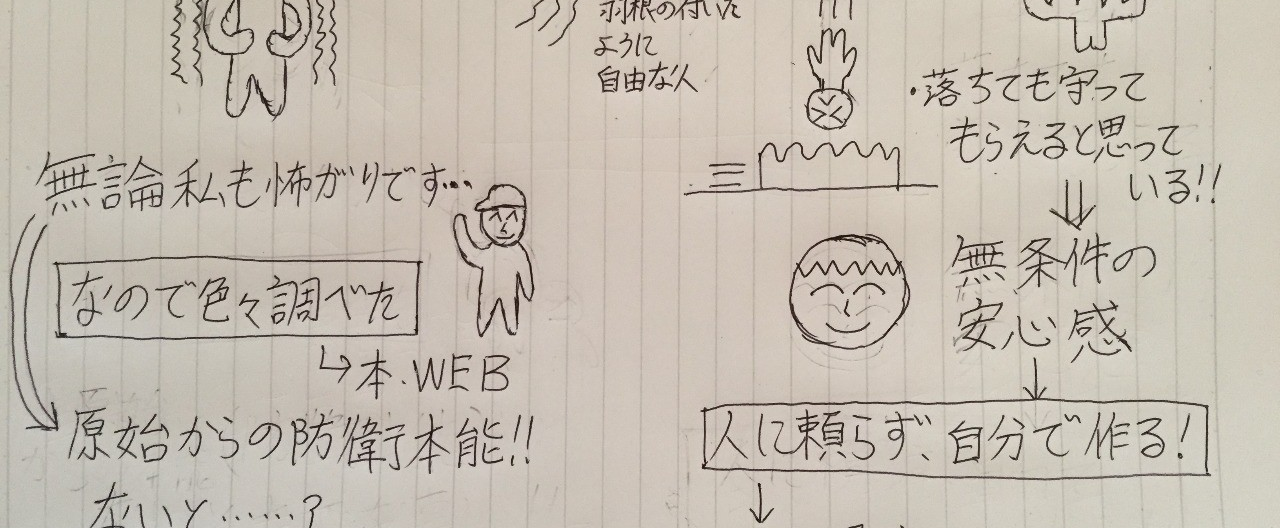 無論私も怖がりです…
なので色々調べた
本.WEB
原始からの防衛本能!!
ないと……?
羽根の付いた
ように
自由な人
・落ちても守って
もらえると思って
いる!!
無条件の
安心感
人に頼らず、自分で作る!